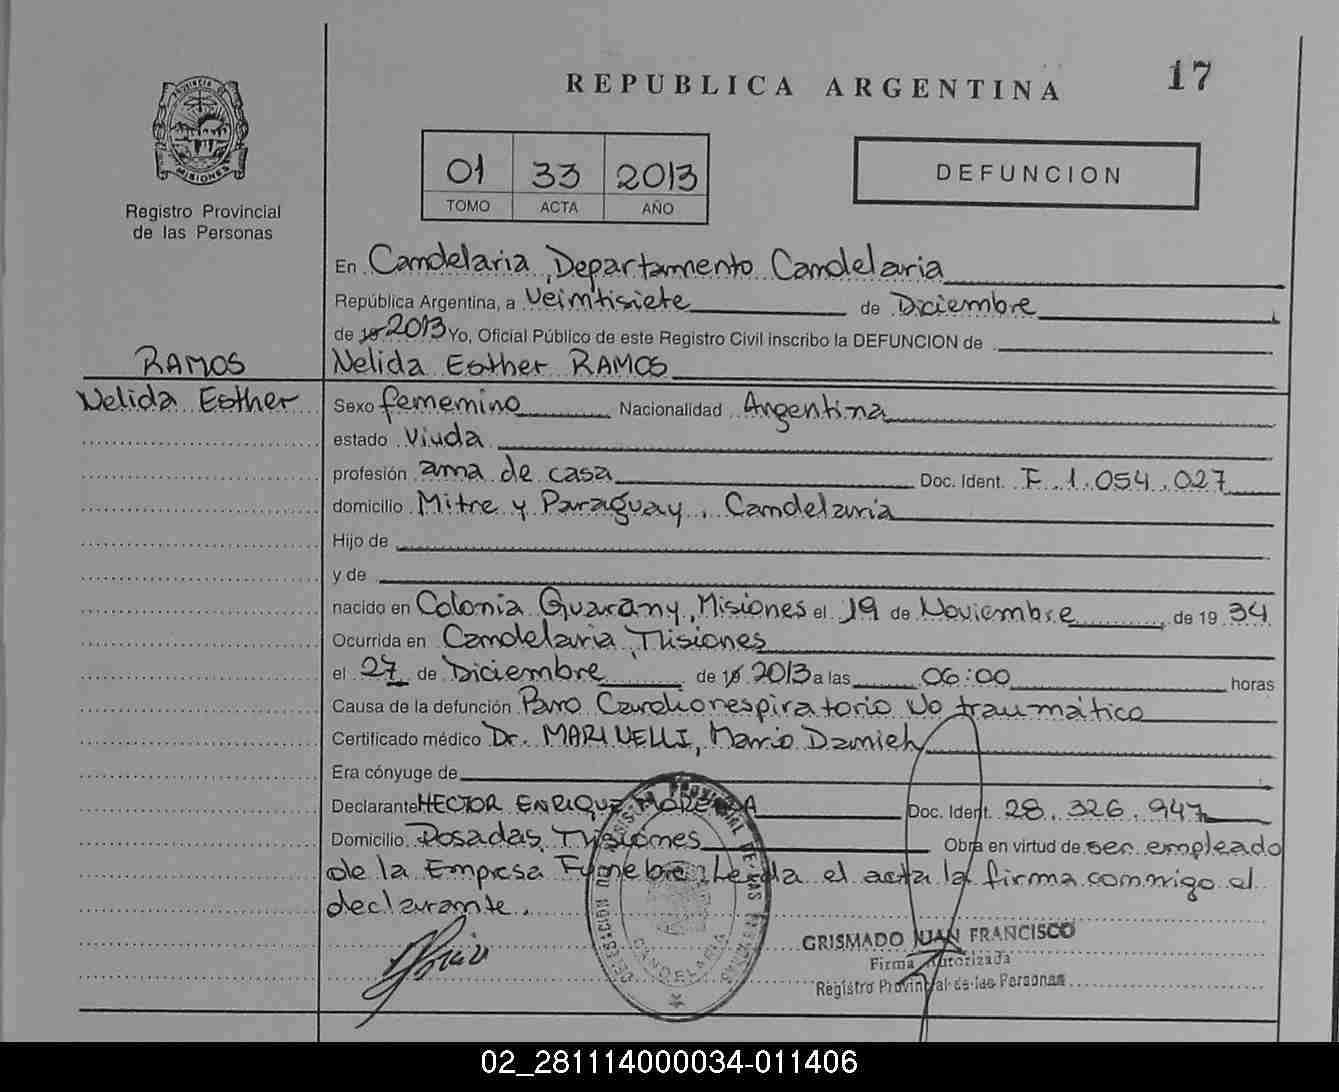 17
REPUBLICA ARGENTINA
PROVINCIA DE
MISIONES
Registro Provincial
de las Personas
01 33 2013
TOMO ACTA AÑO
DEFUNCION
En Candelaria, Departamento Candelaria
República Argentina, a Veintisiete de Diciembre
de 19 2013 Yo, Oficial Público de este Registro Civil inscribo la DEFUNCION de
RAMOS
Nelida Esther RAMOS
Nelida Esther
Sexo femenino Nacionalidad Argentina
estado Viuda
profesión ama de casa Doc. Ident. F. 1.054.027
domicilio Mitre y Paraguay, Candelaria
Hijo de
y de
nacido en Colonia Guarany, Misiones el 19 de Noviembre de 19 34
Ocurrida en Candelaria, Misiones
el 27 de Diciembre de 19 2013 a las 06:00 horas
Causa de la defunción Paro Cardiorespiratorio No traumático
Certificado médico Dr. MARINELLI, Mario Daniel
Era cónyuge de
Declarante HECTOR ENRIQUE
Doc. Ident. 28.326.947
Domicilio Posadas, Misiones Obra en virtud de ser empleado
de la Empresa Funebre. Leida el acta la firma conmigo el
declarante.
DELEGACION DEL REGISTRO PROVINCIAL DE LAS PERSONAS
CANDELARIA
GRISMADO JUAN FRANCISCO
Firma Autorizada
Registro Provincial de las Personas
02_281114000034-011406